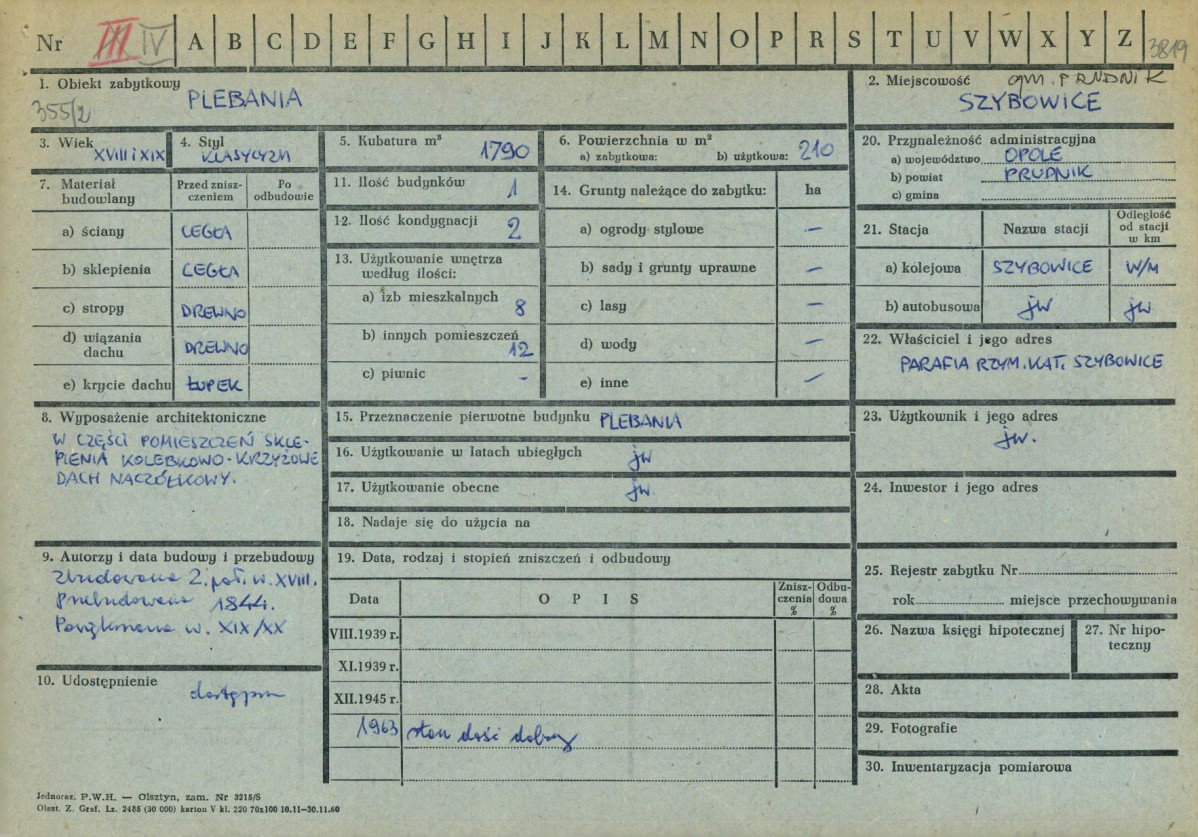 Nr III IV A B C D E F G H I J K L M N O P R S T U V W X Y Z 3819
1. Obiekt zabytkowy
355/2 PLEBANIA
2. Miejscowość gm. PRUDNIK
SZYBOWICE
3. Wiek
XVIII i XIX
4. Styl
KLASYCYZM
5. Kubatura m³ 1790
6. Powierzchnia w m²
a) zabytkowa: b) użytkowa: 210
20. Przynależność administracyjna
a) województwo OPOLE
b) powiat PRUDNIK
c) gmina
7. Materiał budowlany
Przed zniszczeniem
Po odbudowie
a) ściany CEGŁA
b) sklepienia CEGŁA
c) stropy DREWNO
d) wiązania dachu DREWNO
e) krycie dachu ŁUPEK
11. Ilość budynków 1
12. Ilość kondygnacji 2
13. Użytkowanie wnętrza
według ilości:
a) izb mieszkalnych 8
b) innych pomieszczeń 12
c) piwnic -
14. Grunty należące do zabytku: ha
a) ogrody stylowe —
b) sady i grunty uprawne —
c) lasy —
d) wody —
e) inne —
21. Stacja Nazwa stacji Odległość od stacji w km
a) kolejowa SZYBOWICE W/M
b) autobusowa jw jw
22. Właściciel i jego adres
PARAFIA RZYM. KAT. SZYBOWICE
8. Wyposażenie architektoniczne
W CZĘŚCI POMIESZCZEŃ SKLE-
PIENIA KOLEBKOWO-KRZYŻOWE
DACH NACZÓŁKOWY.
15. Przeznaczenie pierwotne budynku PLEBANIA
16. Użytkowanie w latach ubiegłych jw
17. Użytkowanie obecne jw.
18. Nadaje się do użycia na
23. Użytkownik i jego adres
jw.
24. Inwestor i jego adres
9. Autorzy i data budowy i przebudowy
Zbudowana 2. poł. w. XVIII.
Przebudowana 1844.
w. XIX/XX
10. Udostępnienie dostępna
19. Data, rodzaj i stopień zniszczeń i odbudowy
Data O P I S Zniszczenia % Odbudowa %
VIII.1939 r.
XI.1939 r.
XII.1945 r.
1963 stan dość dobry
25. Rejestr zabytku Nr
rok miejsce przechowywania
26. Nazwa księgi hipotecznej
27. Nr hipoteczny
28. Akta
29. Fotografie
30. Inwentaryzacja pomiarowa
Jednoraz. P.W.H. — Olsztyn, zam. Nr 3215/S
Olszt. Z. Graf. Lz. 2485 (30 000) karton V kl. 220 70x100 10.11—30.11.60